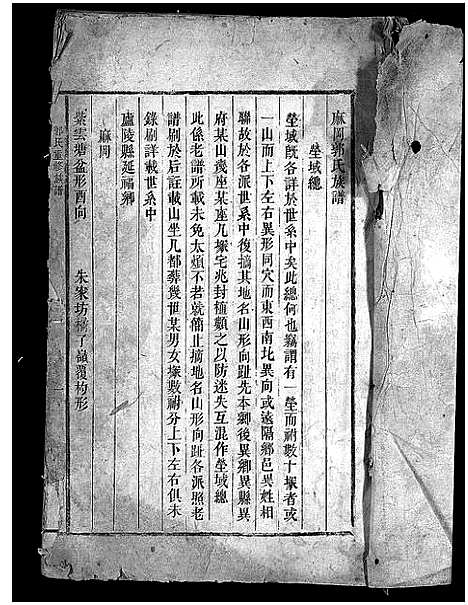 麻岡郭氏族譜
塋域總
塋域旣各詳於世系中矣此總何也竊謂有一塋而祔數十塚者或
一山而上下左右異形同穴而東西南北異向或遠隔鄉邑異姓相
聯故於各派世系中復摘其地名山形向趾先本鄉後異鄉異縣異
府某山幾座某座几塚宅兆封植顧之以防迷失互混作塋域總
此係老譜所載未免太煩不若就簡止摘地名山形向趾各派照老
譜刷於后註載山坐几都葬幾世某男女塚數祔分上下左右俱未
錄刷詳載世系中
廬陵縣延福鄉
麻岡
紫雲塘盆形酉向 朱家坊橋丁嶺覆杓形
郭氏重修族譜